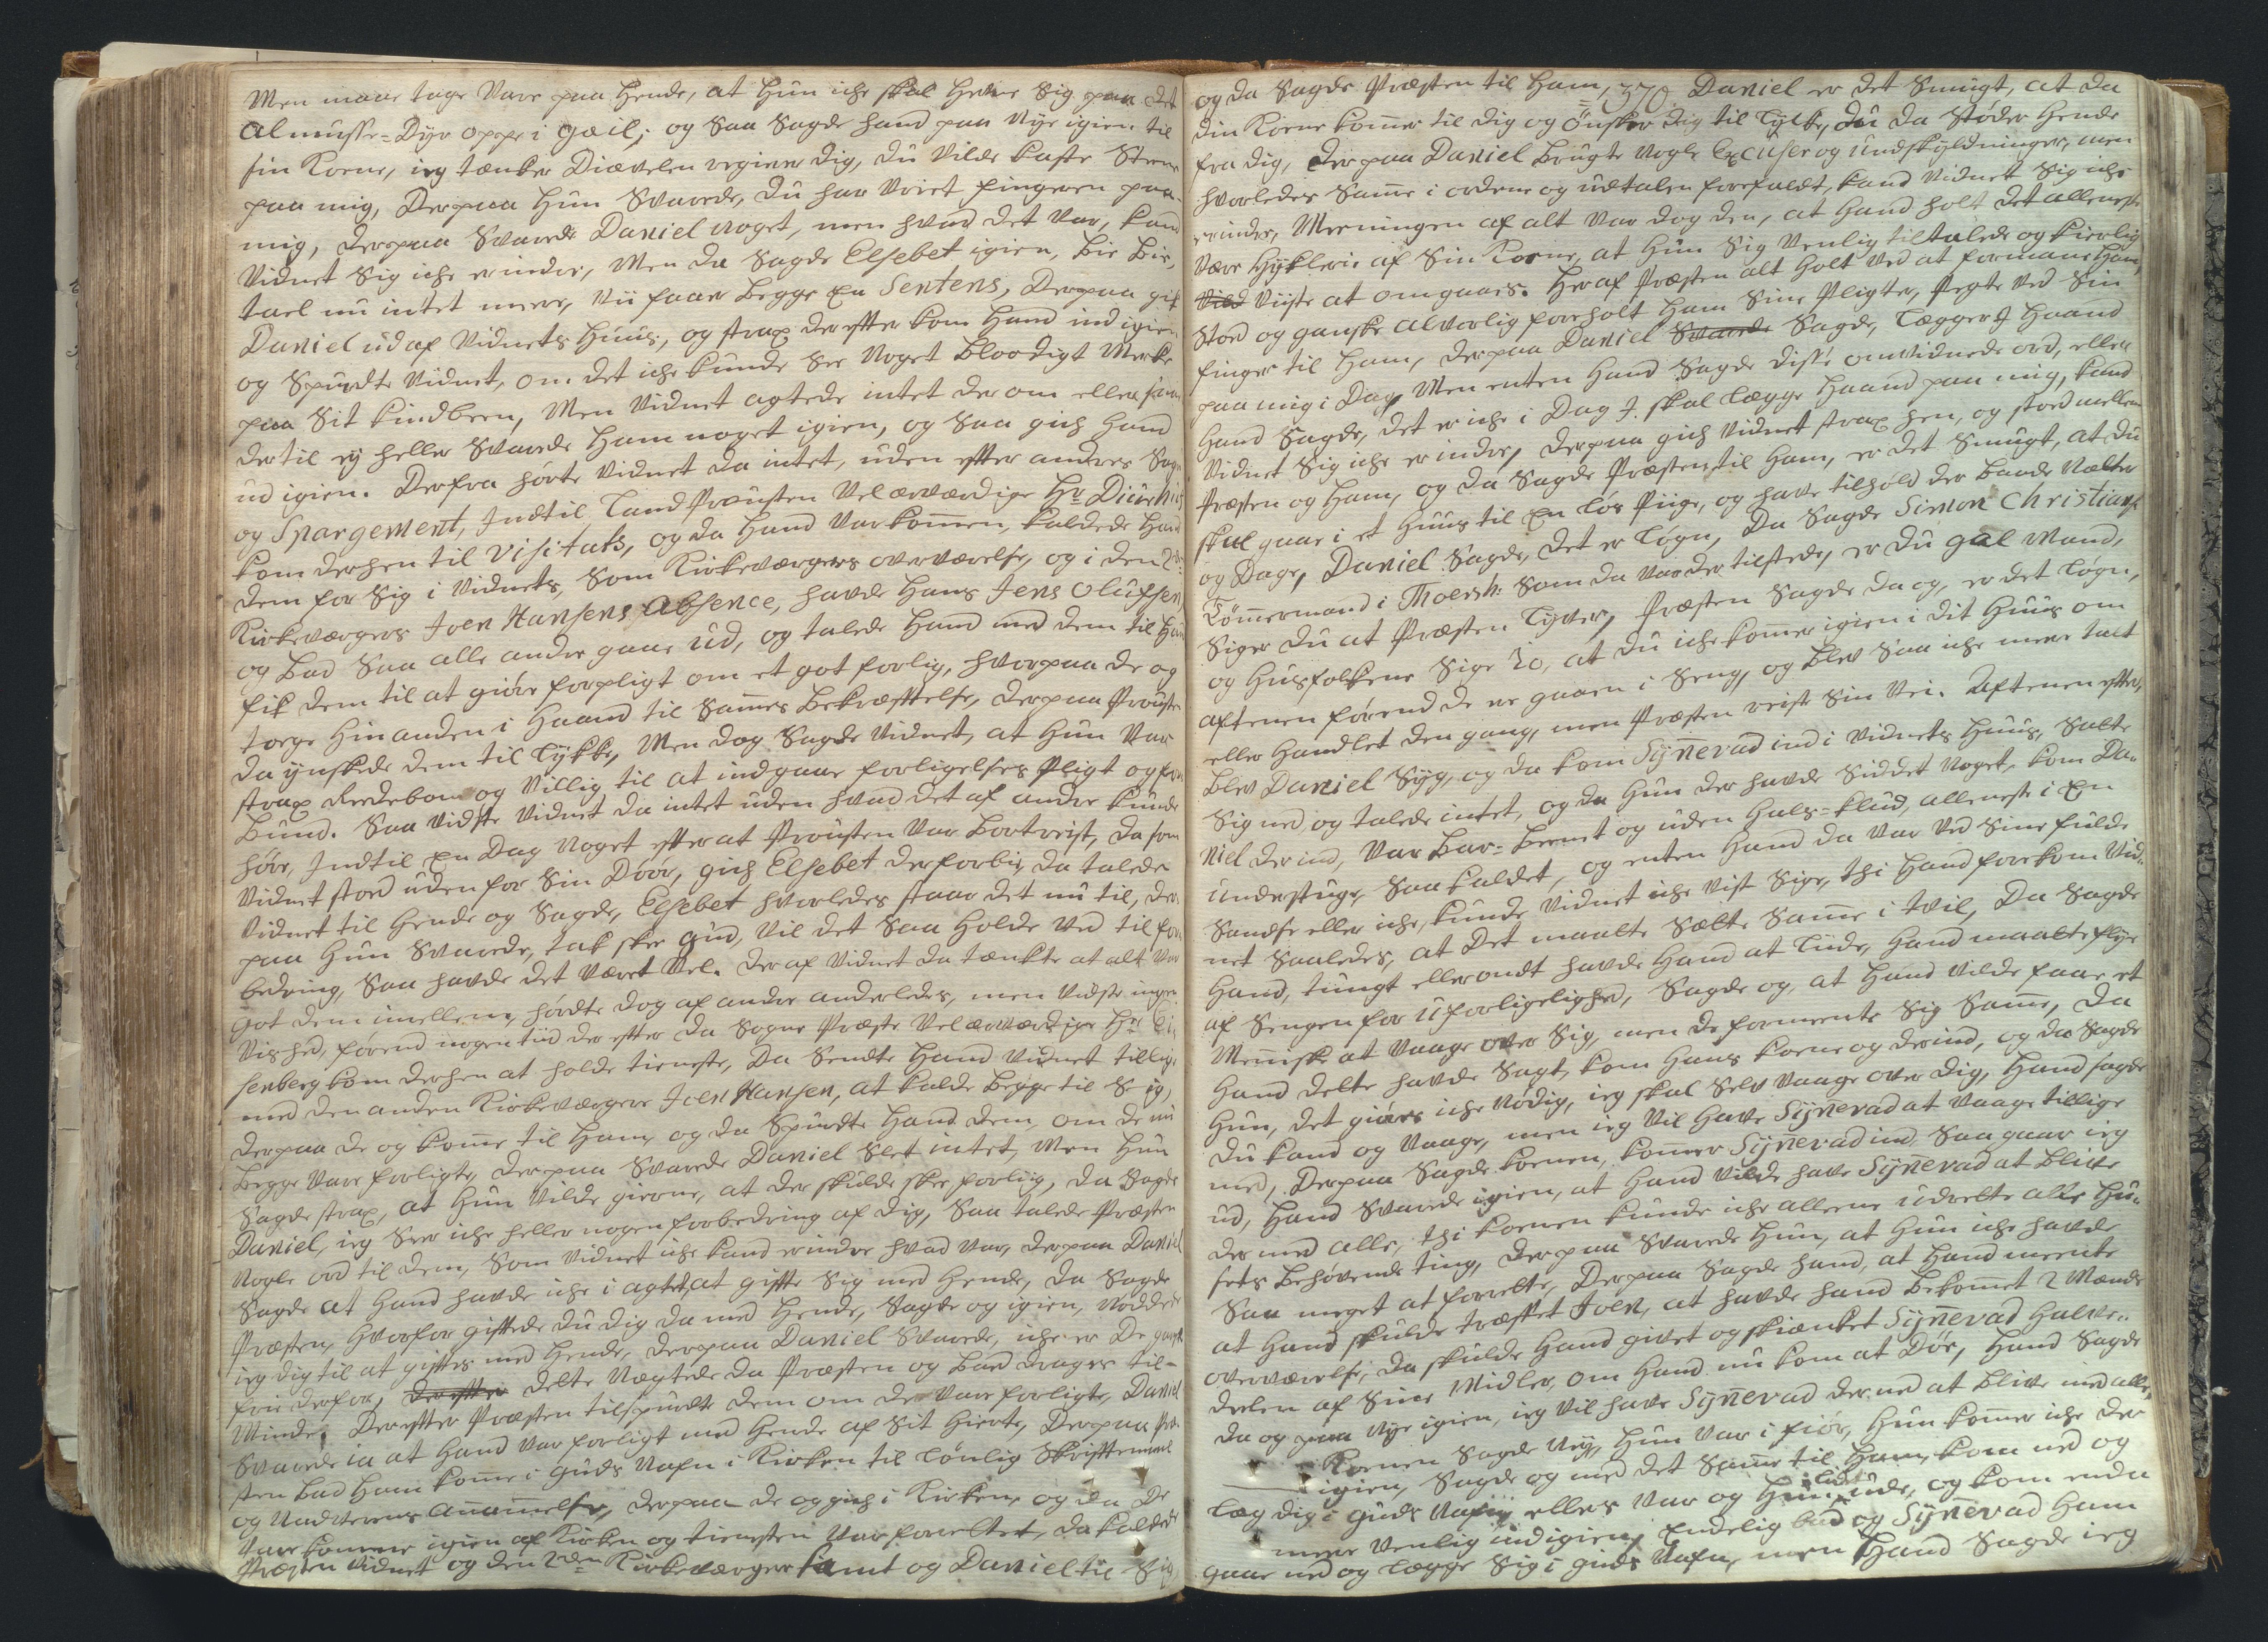 Men maae tage Vare paa hende, at hun iche skal henne Sig paa det
almusse-Dyr oppe i Gæil; og Saa Sagde hand paa Nye igien til
sin Kone, ieg tænker Diævelen regierer dig, du vilde kaste Steene
paa mig, Derpaa hun Svarede, du har Vriet fingeren paa
mig, derpaa Svarede Daniel noget, men hvad det var, kand
Vidnet Sig iche erindre, Men da Sagde Elsebet igien, Bie Bie,
tael nu intet meere, Vii faaer begge En Sentens, Derpaa gik
Daniel ud af Vidnets Huus, og strax derefter kom hand ind igien
og Spurdte Vidnet, om det iche kunde See Noget Bloodigt Merke
paa Sit kindbeen, Men Vidnet agtede intet der om eller saae
dertil ey heller Svarede ham noget igien, og Saa gich hand
ud igien. Derfra hørte Vidnet da intet, uden efter andres Sagn
og Spargement, Indtil Land Prousten Velærværdige Hr. Diurhuus
kom derhen til Visitats, og da hand Var kommen, kaldede hand
dem for Sig i Vidnets, Som Kirkeværgers overværelse, og i den 2den
Kirkeværgers Joen Hansens Absence, havde hans Jens Olufsen,
og bad Saa alle andre gaae ud, og talede hand med dem til hun
fik dem til at giøre forpligt om et got forlig, hvorpaa de og
toege hinanden i Haand til Sammes Bekræfftelse, derpaa Prousten
da ynskede dem til Lykke, Men dog Sagde Vidnet, at hun Var
strax Reedebom og Villig til at indgaae forligelses Pligt og for-
bund. Saa Vidste Vidnet da intet uden hvad det af andre kunde
høre, Indtil En Dag Noget efter at Prousten Var bortreist, da som
Vidnet stoed uden for Sin Døør, gich Elsebet der forbie, da talede
Vidnet til hende og Sagde, Elsebet hvorledes staaer det nu til, der-
paa hun Svarede, tak skee Gud, Vil det Saa holde Ved til for-
bedring, Saa havde det Været Vel. Der af Vidnet da tænkte at alt Var
got dem imellem, hørdte dog af andre anderledes, men Vidste ingen
Vished, førend nogen tiid der efter da Sogne Præste Velærværdige Hr. Ei-
senberg kom derhen at holde tieneste, Da Sendte hand Vidnet tillige
med den anden Kirkeværgere Joen Hansen, at kalde begge til Sig,
derpaa de og komme til ham, og da Spurdte hand dem, om de nu
begge Vare forligte, derpaa Svarede Daniel Slet intet, Men hun
Sagde strax, at hun Vilde gierne, at der skulde skee forliig, da Sagde
Daniel, ieg Seer iche heller nogen forbedring af dig, Saa talede Præsten
Nogle ord til dem, Som Vidnet iche kand erindre hvad Var, derpaa Daniel
Sagde at hand havde iche i agtet, at gifte Sig med hende, da Sagde
Præsten, hvorfor giftede du dig da med hende, Sagde og igien, Nødde
ieg dig til at giftes med hende, derpaa Daniel Svarede, iche er De gansk
frie derfor, der efter dette Nægtede da Præsten og bad drages til-
Minde. Derefter Præsten tilspurdte dem om de Vare forligte, Daniel
Svarede ia at hand Var forligt med hende af Sit hierte, Derpaa Præ-
sten bad ham komme i Guds Nafn i Kirken til Lønlig Skriftemaal
og Nadverens Anammelse, derpaa de og gich i Kirken, og da De
Vare komne igien af Kirken og tienesten Var forrettet, da kaldede
Præsten Vidnet og den 2den Kirkeværger samt og Daniel til Sig
370.
og da Sagde Præsten til ham, Daniel er det Smugt, at da
din Kone kommer til dig og Ønsker dig til Lykke, du da Støder hende
fra dig, derpaa Daniel brugte Nogle Excuser og Undskyldninger, men
hvorledes Samme i ordene og udtalen forefaldt, kand Vidnet Sig iche
erindre, Meeningen af alt Var dog den, at hand holt det alleneste
være hyklerie af Sin Kone, at hun Sig Venlig tiltalede og kierlig
Vild Viiste at omgaaes. Heraf Præsten alt holt Ved at formane ham,
Stoed og ganske alvorlig foreholt ham Sine Pligter, Pegte Ved Sin
finger til ham, derpaa Daniel Svarede Sagde, Lægger I Haand
paa mig i Dag, Men enten hand Sagde disse omvidnede ord, eller
hand Sagde, det er iche i Dag I. skal Lægge Haand paa mig, kand
Vidnet Sig iche erindre, derpaa gich Vidnet strax hen, og stoed mellem
Præsten og ham, og da Sagde Præsten til ham, er det Smugt, at du
skal gaae i et Huus til En Løs Piige, og have tilhold der baade Nætter
og Dage, Daniel Sagde, det er Løgn, Da Sagde Simon Christians:
Tømmermand i Thorsh: Som da Var der tilstede, er du gal Mand,
Siger du at Præsten Lyver, Præsten Sagde da og, er det Løgn,
og Husfolkene Sige Jo, at du iche kommer igien i dit Huus om
aftenen førend de er gaaen i Seng, og blev Saa iche meere talt
eller handlet den gang, men Præsten reiste Sin Vei. Aftenen efter,
blev Daniel Syg, og da kom Synnevad ind i Vidnets Huus, Satte
Sig ned og talede intet, og da hun der havde Siddet Noget, kom Da-
niel der ind, Var bar-beenet og uden Hals-klud, alleneste i En
Understuge, Saa kaldet, og enten hand da Var Ved Sine fulde
Sandse eller iche, kunde Vidnet iche Vist Sige, thi hand forekom Vid-
net Saaledes, at Det maatte Sætte Samme i tvil, Da Sagde
hand, tungt eller ondt havde hand at Liide, hand maatte flye
af Sengen for Uforligelighed, Sagde og, at hand Vilde faae et
Menniske at Vaage over Sig, men de formeente Sig Samme, Da
hand dette havde Sagt, kom hans kone og derind, og da Sagde
hun, det giøres iche Nødig, ieg skal Selv Vaage over dig, hand sagde
du kand og Vaage, men ieg Vil have Synnevad at Vaage tillige
med, Derpaa Sagde konen, kommer Synnevad ind, Saa gaaer ieg
ud, hand Svarede igien, at hand Vilde have Synnevad at blive
der med alle, thi konen kunde iche alleene udrette alle Hu-
sets behøvende ting, derpaa Svarede hun, at hun iche havde
Saa meget at forrette, Derpaa Sagde hand, at hand meente
at hand skulde træffet Joen, at havde hand bekommet 2 Mænds
overværelse, da skulde hand givet og skiænket Synnevad halve-
deelen af Sine Midler, om hand nu kom at Døe, hand Sagde
da og paa Nye igien, ieg Vil have Synnevad der ned at blive med alle,
Konen Sagde Ney, hun Var i fior, hun kommer iche der
igien, Sagde og med det Samme til ham, kom ned og
Læg dig i Guds Nafn, ellers Var og hun Lidt ude, og kom enda
meere Venlig ind igien, Endelig bad og Synnevad ham
gaae ned og Lægge Sig i Guds Nafn, men hand Sagde ieg